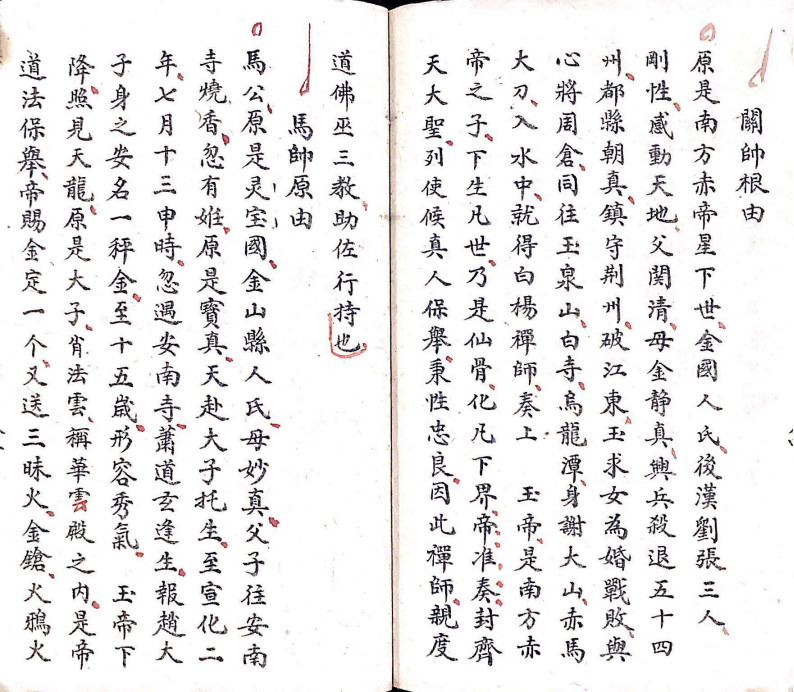 關帥根由
原是南方赤帝星下世金國人氏後漢劉張三人
剛性感動天地父関清母金静真興兵殺退五十四
州都縣朝真鎮守荆州破江東玉求女為婚戰敗與
心將周倉同往玉泉山白寺烏龍潭身謝大山赤馬
大刀入水中就得白楊禪師奏上 玉帝是南方赤
帝之子下生凡世乃是仙骨化凡下界帝准奏封齊
天大聖列使候真人保舉秉性忠良因此禪師親度
道佛巫三教助佐行持也
馬帥原由
馬公原是灵宝國金山縣人氏母妙真父子往安南
寺燒香忽有姙原是寳真天赴大子托生至宣化二
年七月十三申時忽遇安南寺蕭道玄逢生報趙大
子身之安名一秤金至十五歳形容秀氣 玉帝下
降照見天龍原是大子肖法雲稱華雲殿之内是帝
道法保舉帝賜金定一个又送三昧火金鎗火鴉火